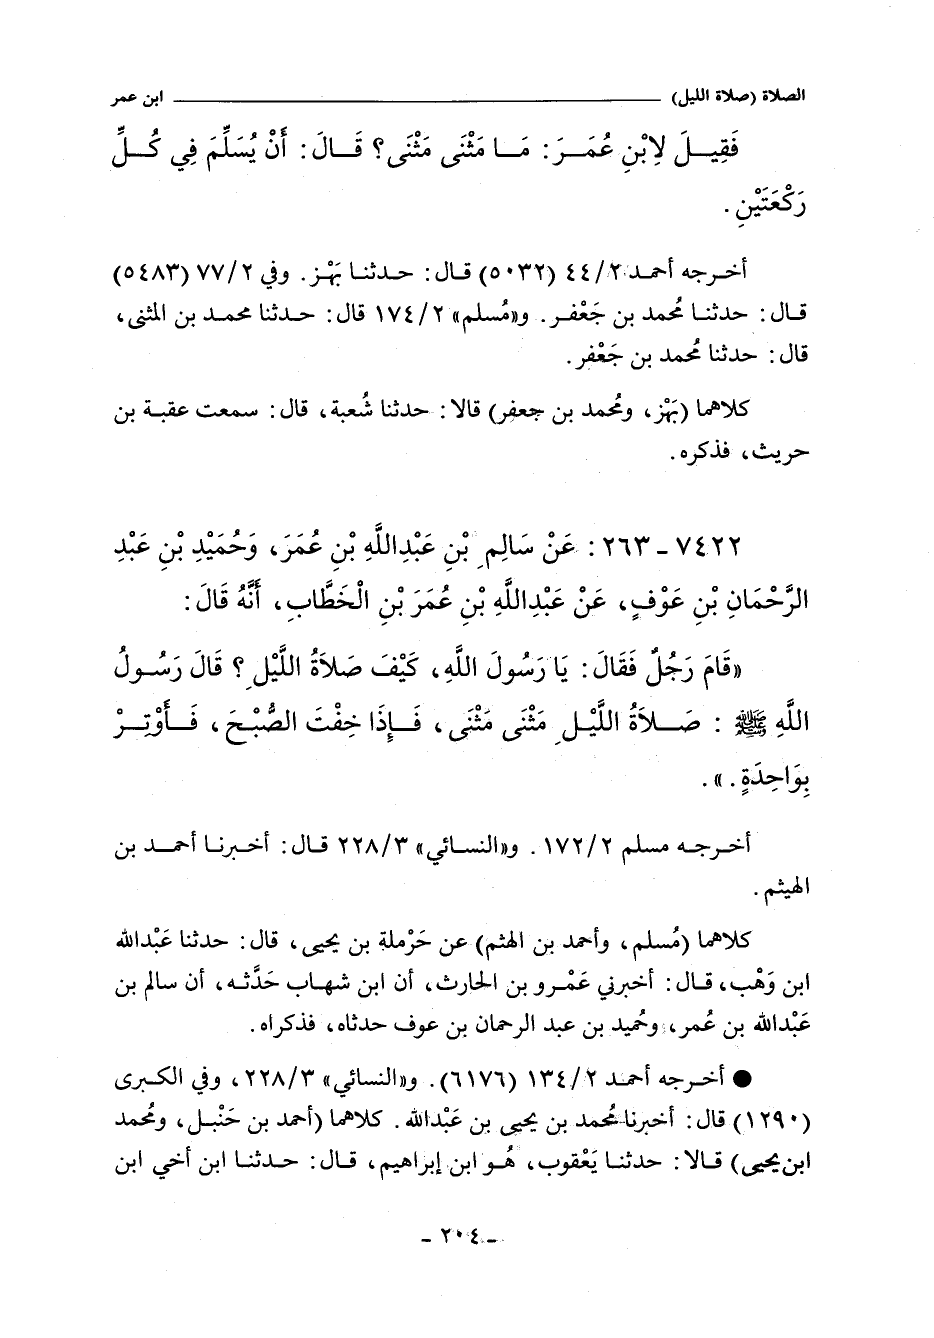 الصلاة (صلاة الليل) ــــــــــــــــــــــــــــــــ ابن عمر
فَقِيــلَ لِابْنِ عُمَــرَ: مَــا مَثْنَى مَثْنَى؟ قَــالَ: أَنْ يُسَلِّمَ فِي كُــلِّ
رَكْعَتَيْنِ.
أخـرجه أحمد ٤٤/٢ (٥٠٣٢) قـال: حـدثنـا بَهْـز. وفي ٧٧/٢ (٥٤٨٣)
قـال: حدثنـا مُحمد بن جَعْفـر. و«مُسلم» ١٧٤/٢ قال: حـدثنا محمـد بن المثنى،
قال: حدثنا مُحمد بن جَعْفر.
كلاهما (بَهْز، ومُحمد بن جعفر) قالا: حدثنا شُعبة، قال: سمعت عقبة بن
حريث، فذكره.
٧٤٢٢ - ٢٦٣: عَنْ سَالِمِ بْنِ عَبْدِاللَّهِ بْنِ عُمَرَ، وَحُمَيْدِ بْنِ عَبْدِ
الرَّحْمَانِ بْنِ عَوْفٍ، عَنْ عَبْدِاللَّهِ بْنِ عُمَرَ بْنِ الْخَطَّابِ، أَنَّهُ قَالَ:
«قَامَ رَجُلٌ فَقَالَ: يَا رَسُولَ اللَّهِ، كَيْفَ صَلاَةُ اللَّيْلِ؟ قَالَ رَسُـولُ
اللَّهِ ﷺ: صَــلاَةُ اللَّيْلِ مَثْنَى مَثْنَى، فَـإِذَا خِفْتَ الصُّبْحَ، فَـأَوْتِـرْ
بِوَاحِدَةٍ.».
أخـرجـه مسلم ١٧٢/٢. و«النسـائي» ٢٢٨/٣ قـال: أخبـرنـا أحمـد بن
الهيثم.
كلاهما (مُسلم، وأحمد بن الهثم) عن حَرْملة بن يحيى، قال: حدثنا عَبْدالله
ابن وَهْب، قـال: أخبرني عَمْـرو بن الحارث، أن ابن شهـاب حَدَّثـه، أن سالم بن
عَبْدالله بن عُمر، وحُميد بن عبد الرحمان بن عوف حدثاه، فذكراه.
● أخـرجه أحمـد ١٣٤/٢ (٦١٧٦). و«النسائي» ٢٢٨/٣، وفي الكـبرى
(١٢٩٠) قال: أخبرنا مُحمد بن يحيى بن عَبْدالله. كلاهما (أحمد بن حَنْبـل، ومُحمد
ابن يحيى) قـالا: حدثنـا يَعْقوب، هُـو ابن إبراهيم، قـال: حـدثنـا ابن أخي ابن
- ٢٠٤ -